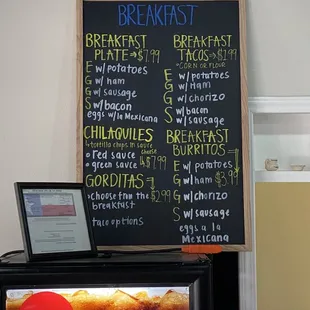 BREAKFAST
BREAKFAST
PLATE → $7.99
E w/ potatoes
G w/ ham
G w/ sausage
S w/ bacon
eggs w/ la Mexicana
CHILAQUILES
tortilla chips in sauce
• red sauce cheese
• green sauce → $7.99
GORDITAS
• choose from the $2.99
breakfast
taco options
BREAKFAST
TACOS → $1.99
*CORN OR FLOUR
E w/ potatoes
G w/ Ham
G w/ chorizo
S w/ bacon
w/ sausage
BREAKFAST
BURRITOS
E w/ potatoes
G w/ ham $3.99
G w/ chorizo
S w/ sausage
eggs a la
Mexicana